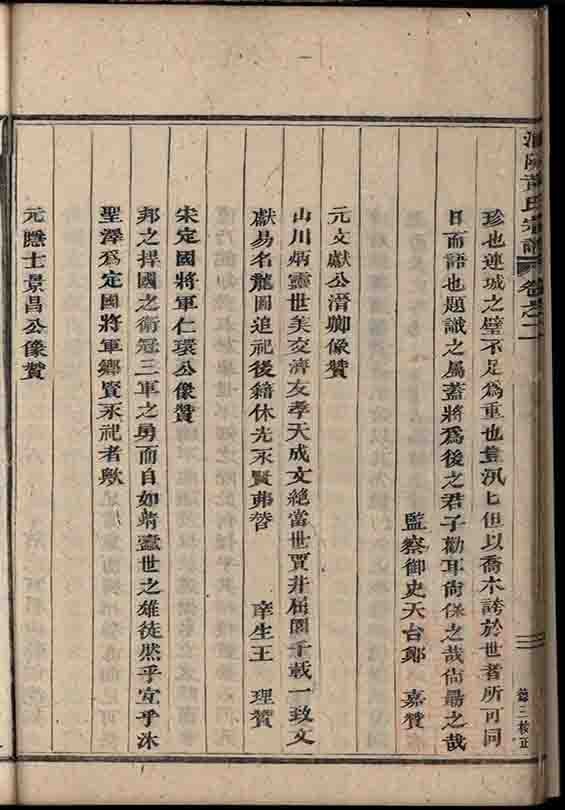 氏宗譜 卷之二
珍也連城之璧不足爲重也豈汎匕但以喬木誇於世者所可同
日而語也題識之属蓋將爲後之君子勸耳尙保之哉尙勗之哉
監察御史天台鄭 嘉贊
元文獻公溍卿像贊
山川炳靈世美交濟友孝天成文絶當世賈井屈園千載一致文
獻易名龍圖追祀後籍休光永賢弗替 庠生王 理贊
宋定國將軍仁環公像贊
邦之捍國之衛冠三軍之勇而自如靖蠹世之雄徒然乎宜乎沐
聖澤爲定國將軍鄉賢永祀者歟
元隱士景昌公像贊
錄三校正